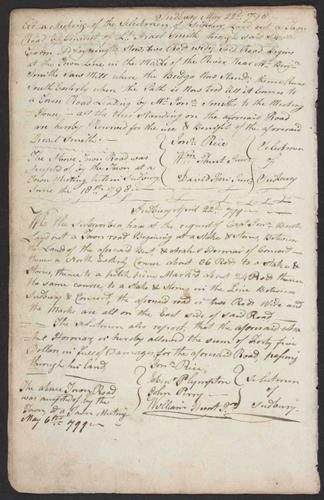 Sudbury May 22d 1798
At a Meeting of the Selectmen of Sudbury laid out a Town
Road Request of Israel Smith through Said Smiths
Two rods wide, Said Road begins
at the Town Line in the Middle of the River Near Mr Benjn
Smiths Saw Mill where the Bridge Now Stands, thence Runs
South Easterly where the Path is Now trod till it comes to
a Town Road leading by Mr Smiths to the Meeting
House, all the trees Standing on the aforesaid Road
are hereby Reserved for the use & Benefit of the aforesaid
Israel Smith
The Above Town Road was
accepted of by the Town at a
Town Meeting held in Sudbury
June the 18th 1798
Jona Rice
Wm Hunt Junr
David How Junr
Selectmen
of
Sudbury
Sudbury April 22d 1799
We the Subscribers have at the request of Capt
Laid out a Town road Begining at a Stake & Stones Between
the Land of the aforesaid & Hormar of Concord
thence a North Easterly Course about 66 Rods to a Stake &
Stones, thence to a pitch pine Markd about 24 Rods thence
the same course to a Stake & Stones in the Line Between
Sudbury & Concord, the aforesaid road is two Rods Wide and
the Marks are all on the East side of Said Road
The Selectmen also report, that the aforesaid
Hormar is hereby allowed the sum of forty five
Dollars in full of Damages for the aforesaid Road passing
through his Land
The above Town Road
was accepted of by the
Town at a Town Meeting
May 6th 1799
Jona Rice
Ebenr Plympton
John Perry
William Hunt Jr
Selectmen
of
Sudbury